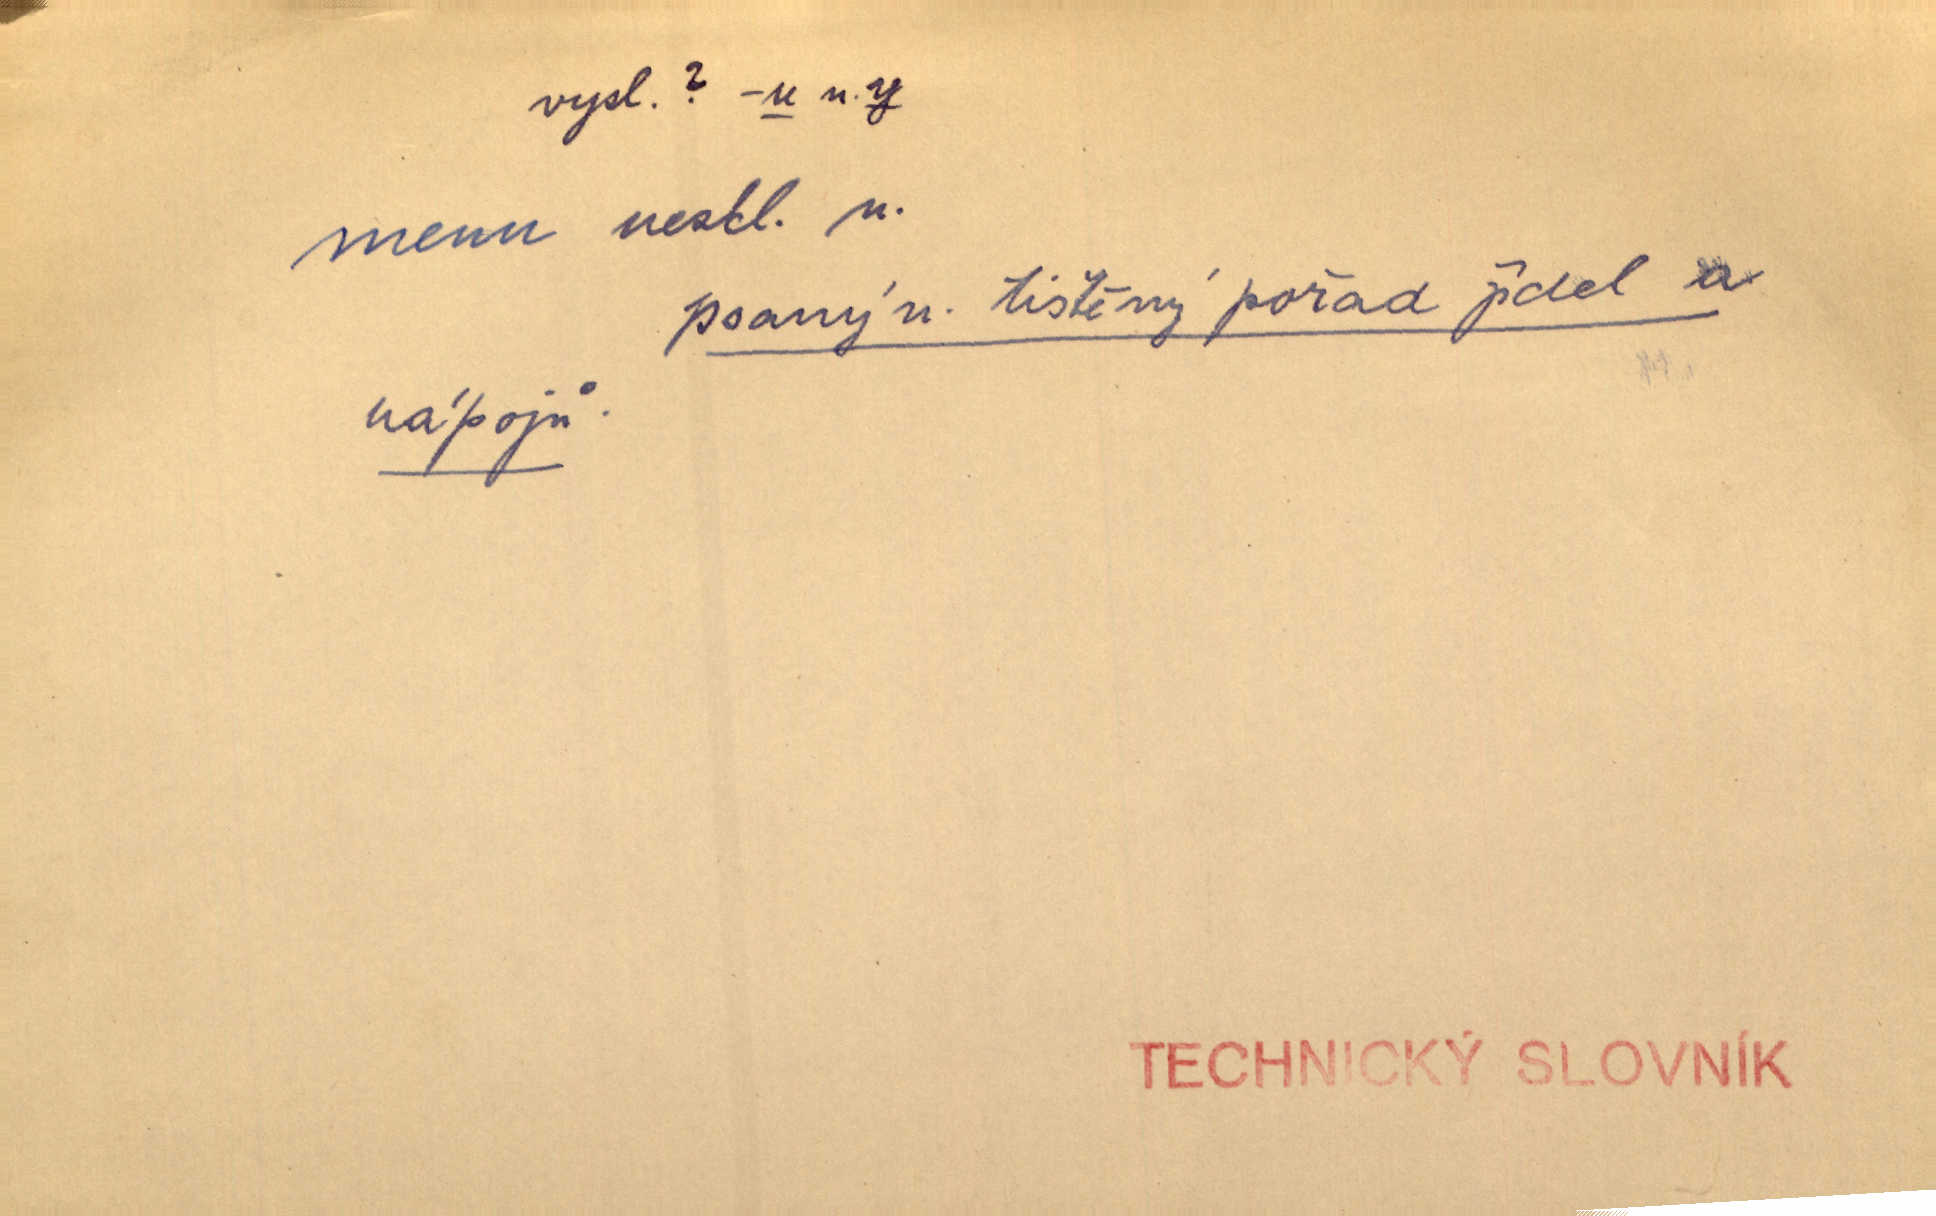 vysl. ? -u n. y
menu neskl. n.
psaný n. tištěný pořad jídel a
nápojů.
TECHNICKÝ SLOVNÍK